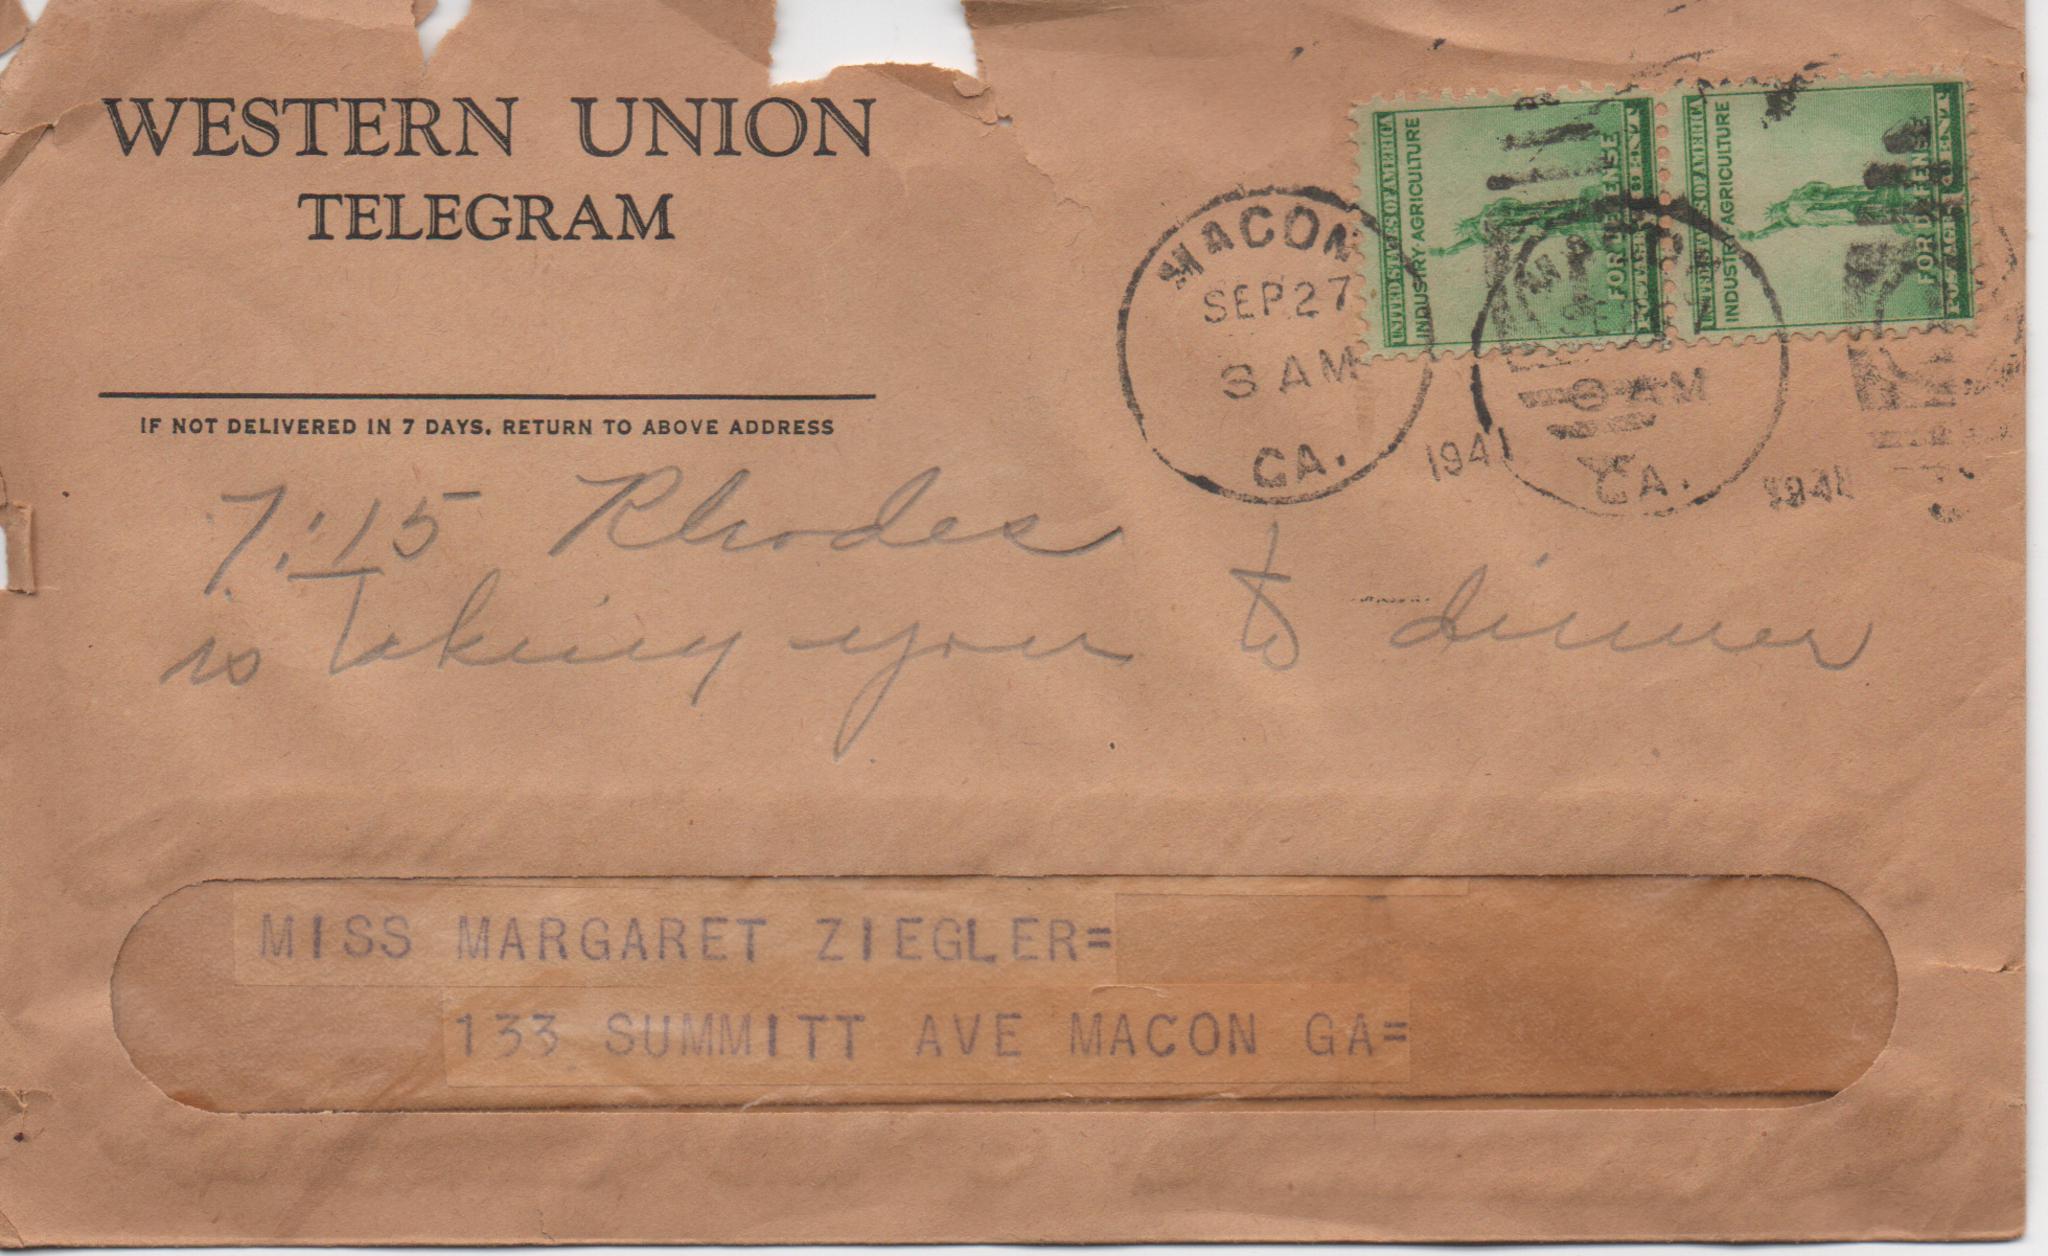 WESTERN UNION
TELEGRAM
IF NOT DELIVERED IN 7 DAYS, RETURN TO ABOVE ADDRESS
MACON
SEP 27
3 AM
GA.
1941
UNITED STATES OF AMERICA
INDUSTRY·AGRICULTURE
FOR DEFENSE
UNITED STATES OF AMERICA
INDUSTRY·AGRICULTURE
FOR DEFENSE
AM
GA.
7:15 Rhodes
is Taking you to dinner
MISS MARGARET ZIEGLER=
133 SUMMITT AVE MACON GA=